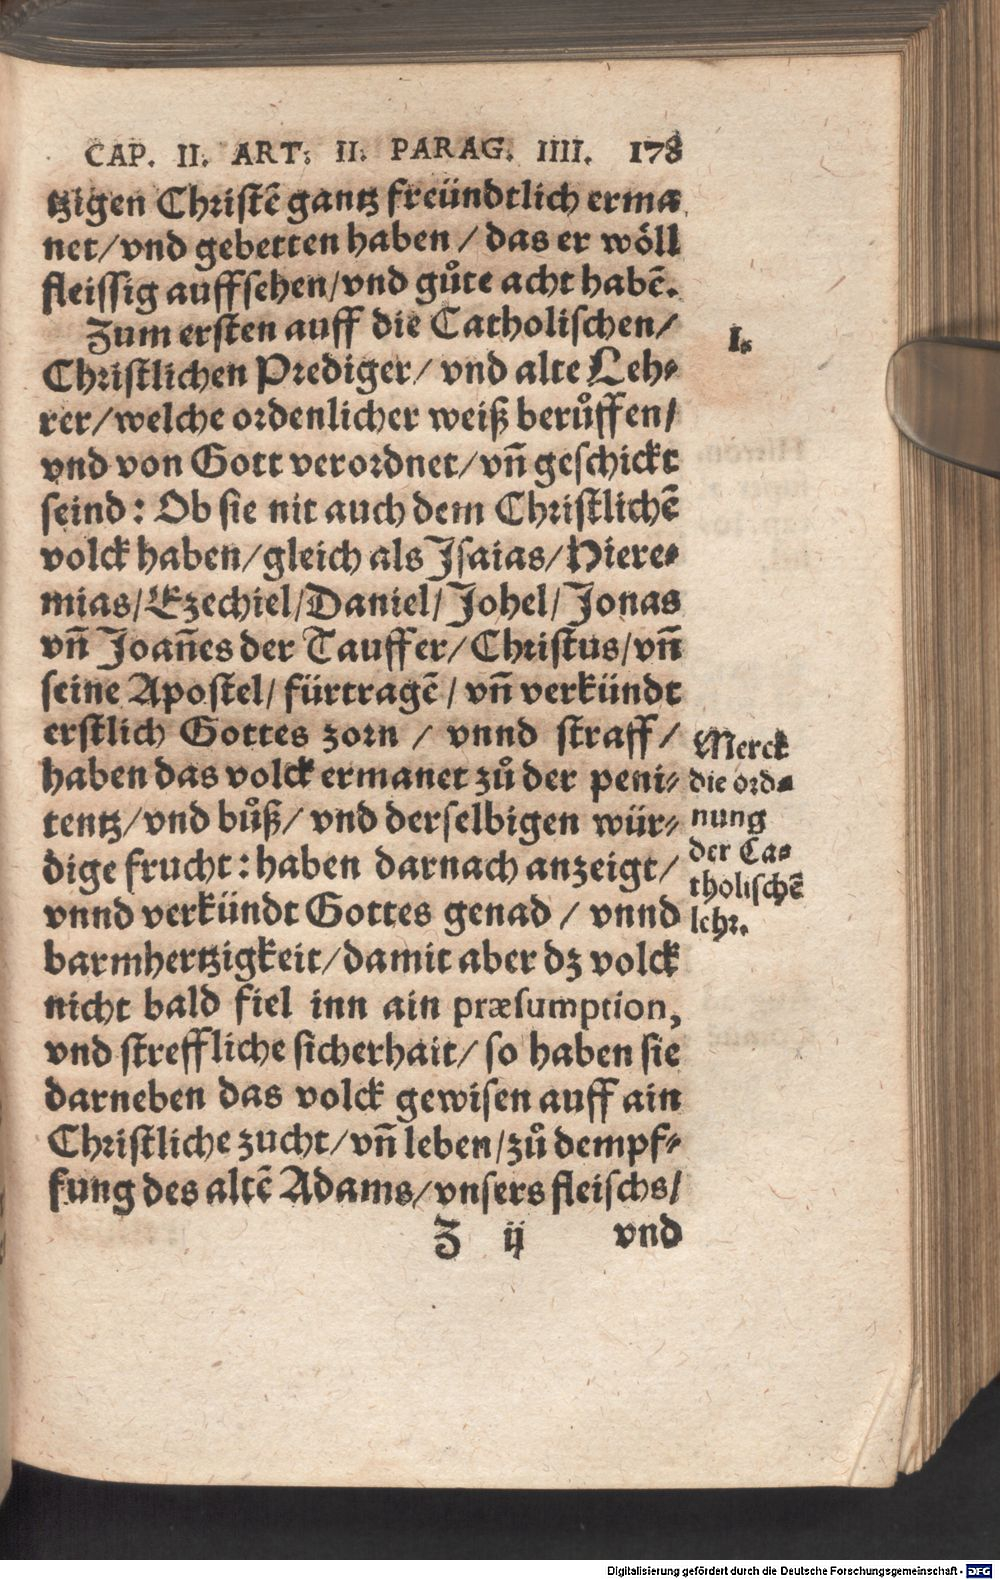 CAP. II. ART: II. PARAG. IIII. 178
tzigen Christẽ gantz freündtlich erma
net/vnd gebetten haben / das er wöll
fleissig auffsehen/vnd gůte acht habẽ.
Zum ersten auff die Catholischen/
I.
Christlichen Prediger/ vnd alte Leh-
rer/welche ordenlicher weiß berůffen/
vnd von Gott verordnet/vñ geschickt
seind: Ob sie nit auch dem Christlichẽ
volck haben/gleich als Jsaias/Hiere-
mias/Ezechiel/Daniel/Johel/Jonas
vñ Joañes der Tauffer/Christus/vñ
seine Apostel/ fürtragẽ/ vñ verkündt
erstlich Gottes zorn / vnnd straff/
haben das volck ermanet zů der peni-
tentz/vnd bůß/ vnd derselbigen wür-
dige frucht: haben darnach anzeigt/
vnnd verkündt Gottes genad / vnnd
barmhertzigkeit/damit aber dz volck
nicht bald fiel inn ain præsumption,
vnd streffliche sicherhait/ so haben sie
darneben das volck gewisen auff ain
Christliche zucht/vñ leben/zů dempf-
fung des altẽ Adams/vnsers fleischs/
Merck
die ord-
nung
der Ca-
tholischẽ
lehr.
Z ij vnd
Digitalisierung gefördert durch die Deutsche Forschungsgemeinschaft - DFG